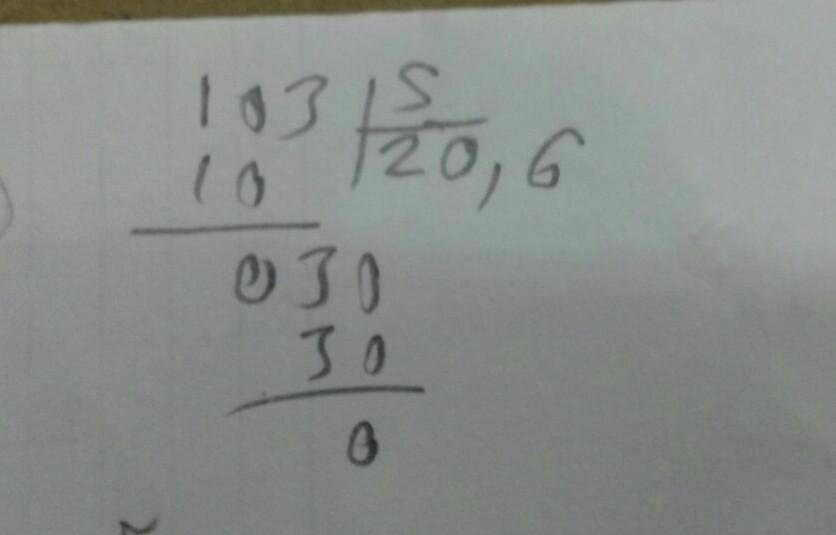 103 5
10 20,6
030
30
0